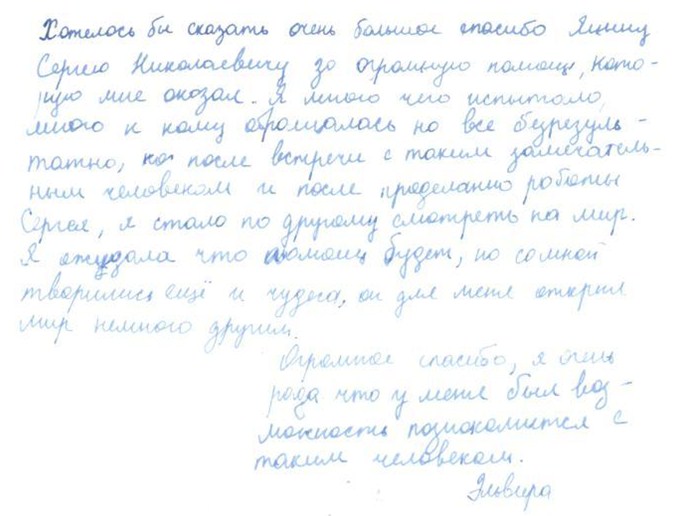 Хотелось бы сказать очень большое спасибо Яцину
Сергею Николаевичу за огромную помощь, кото-
рую мне оказал. Я много чего испытала,
много к кому обращалась но все безрезуль-
татно, но после встречи с таким замечатель-
ным человеком и после проделанно работы
Сергея, я стала по другому смотреть на мир.
Я ожидала что помощь будет, но со мной
творились ещё и чудеса, он для меня открыл
мир немного другим.
Огромное спасибо, я очень
рада что у меня был воз-
можность познакомится с
таким человеком.
Эльвира